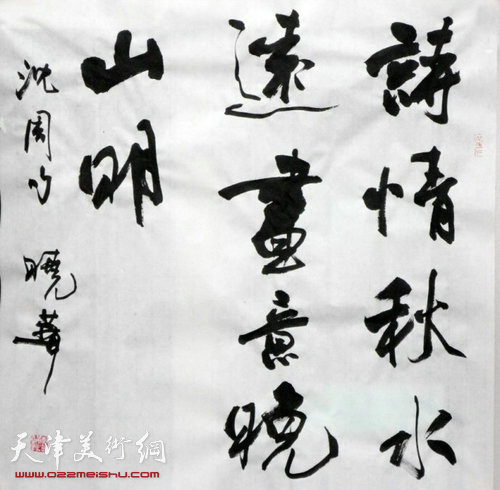 詩情秋水
遠畫意晚
山明
沈周句 曉華
天津美術網
www.022meishu.com